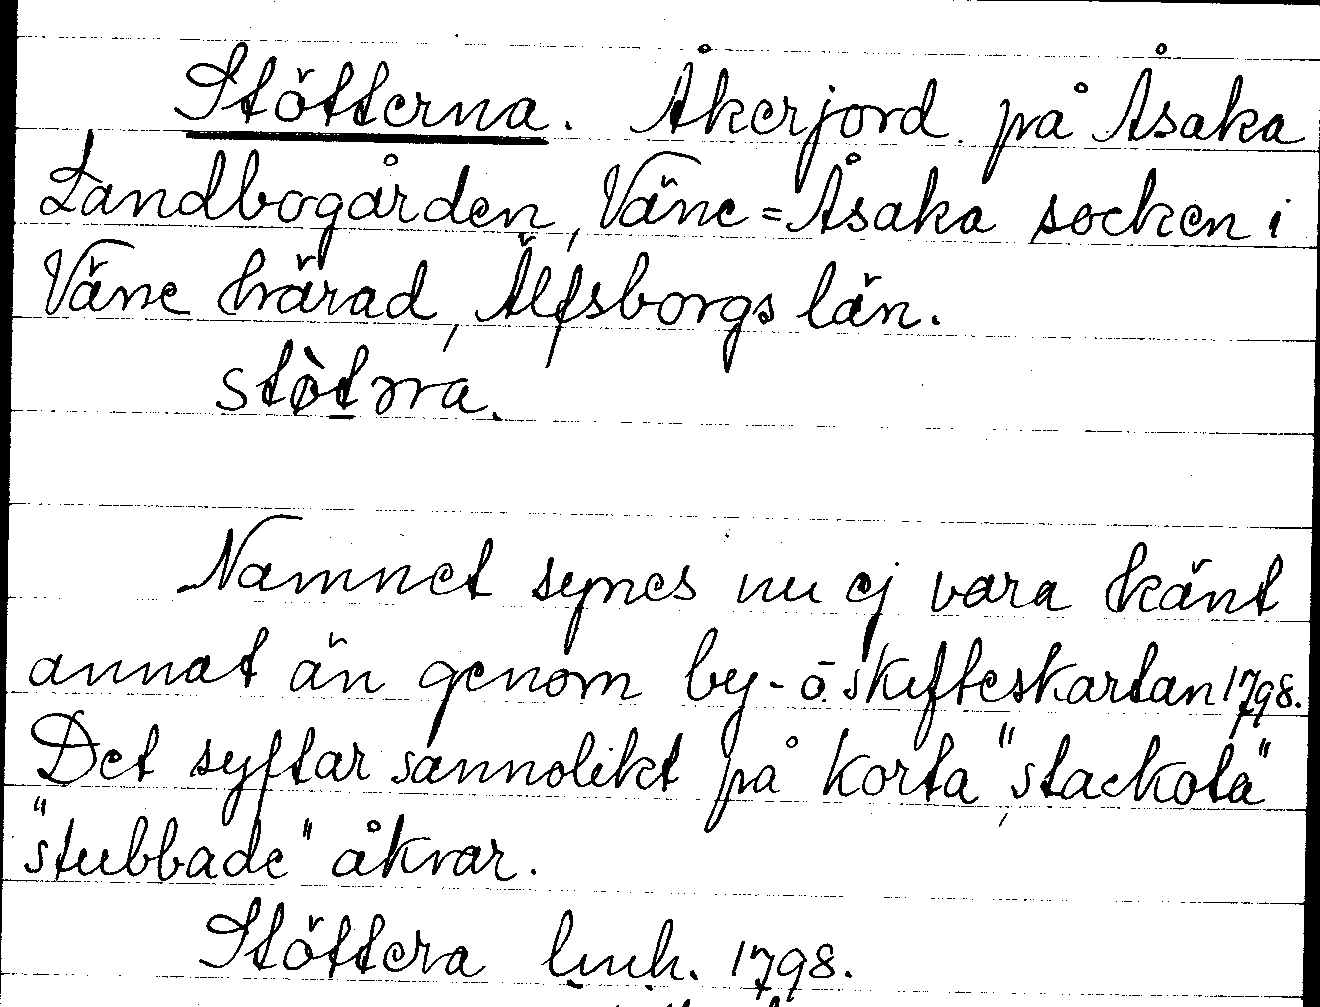 Stötterna. Åkerjord på Åsaka
Landbogården, Väne=Åsaka socken i
Väne härad, Älfsborgs län.
stòt̲ərа.
Namnet synes nu ej vara känt
annat än genom by- o. skifteskartan 1798.
Det syftar sannolikt på korta, "stackota"
"stubbade" åkrar.
Stöttera lmh. 1798.